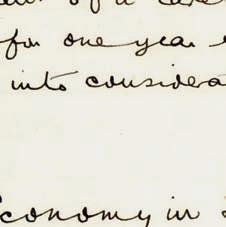 of a care
for one year
into considera
Economy in